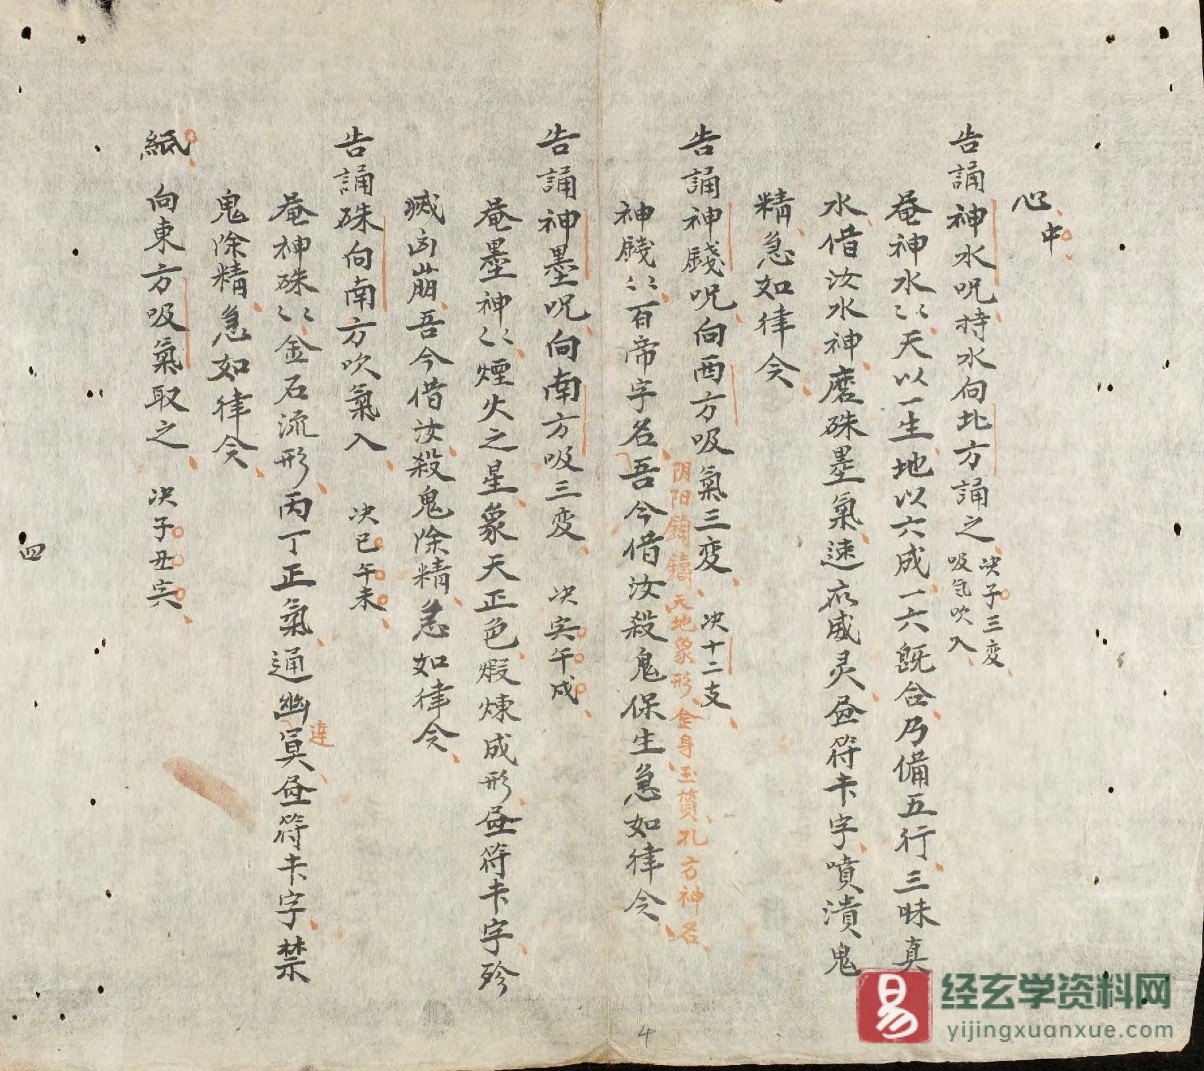 心中
告誦神水呪持水向北方誦之 决子三变
吸气吹入
菴神水〻天以一生地以六成一六既合乃備五行三昧真
水借汝水神磨硃墨氣速応威灵
符卡字噴潰鬼
精急如律令
告誦神醆呪向西方吸氣三変 决十二支
阴阳鑄天地象形金身玉質孔方神名
神醆〻百帝字名吾今借汝殺鬼保生急如律令
告誦神墨呪向南方吸三変 决寅午戌
菴墨神〻煙火之星象天正色煅煉成形
符卡字殄
滅凶崩吾今借汝殺鬼除精急如律令
告誦硃向南方吹氣入 决巳午未
菴神硃〻金石流形丙丁正氣通幽
達
冥
符卡字禁
鬼除精急如律令
紙 向東方吸氣取之 决子丑寅
四
4
易
经玄学资料网
yijingxuanxue.com